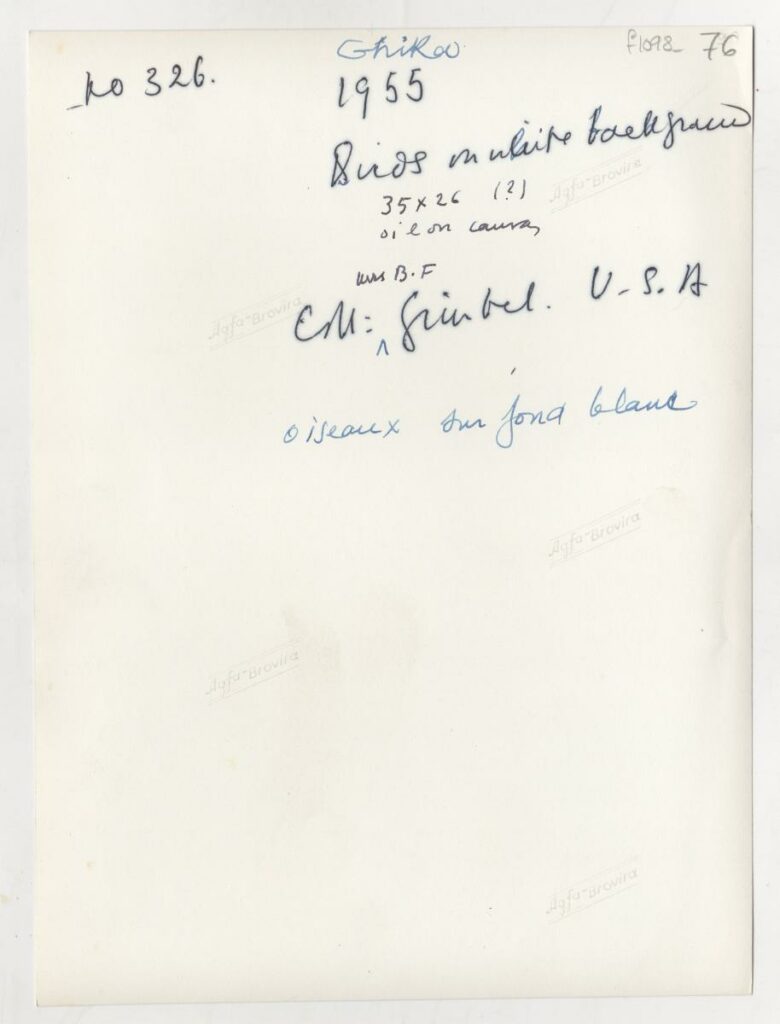 Ghika
f1098 76
No 326.
1955
Birds on white background
35 x 26 (?)
oil on canvas
Mrs B. F
Coll: Gimbel. U.S.A
oiseaux sur fond blanc
Agfa-Brovira
Agfa-Brovira
Agfa-Brovira
Agfa-Brovira
Agfa-Brovira